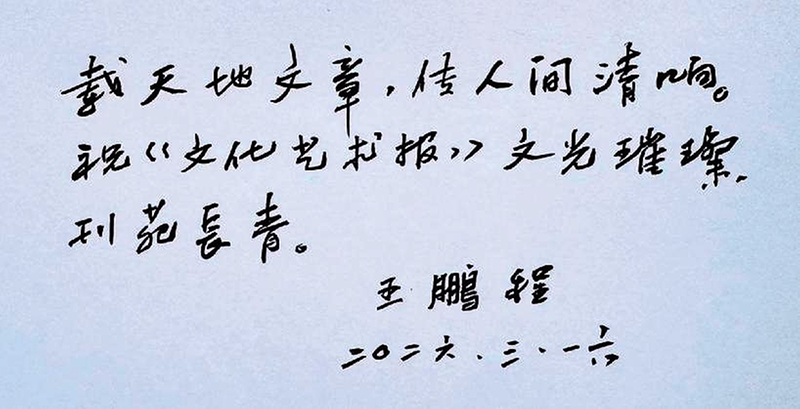 载天地文章，传人间清响。
祝《文化艺术报》文光璀璨，
刊苑長青。
王鹏程
二〇二六.三.一六